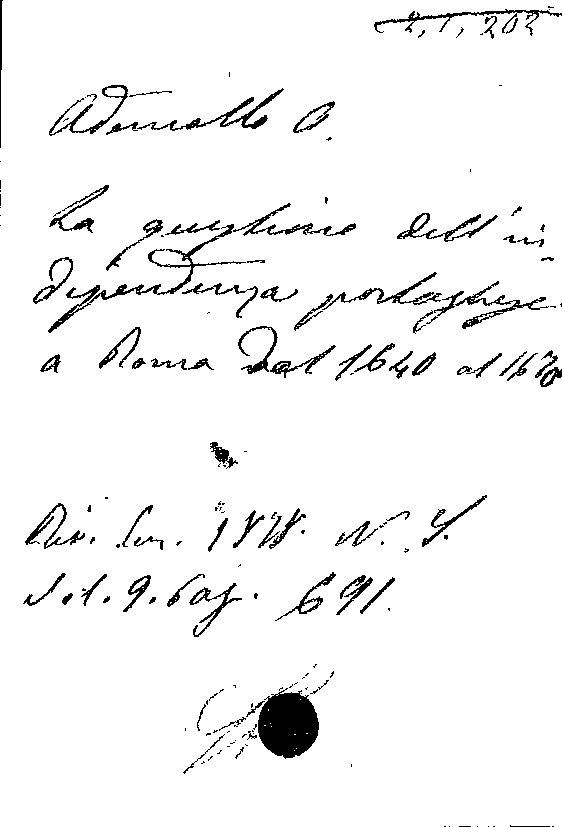 2, 1, 202
Ademollo A.
La questione dell'in-
dipendenza portoghese
a Roma dal 1640 al 1670
Riv. Eur. 1878. N. S.
Vol. 9. Pag. 691.